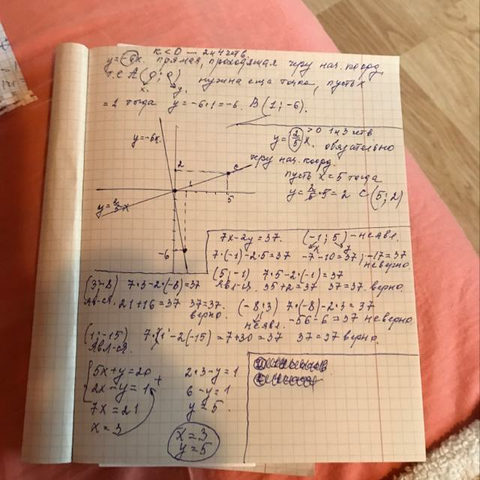 k < 0 — 2 и 4 четв.
y = -6x. прямая, проходящая через нач. коорд.
т.е A (0; 0) нужна еще точка, пусть x
x. y.
= 1 тогда y = -6·1 = -6. B (1; -6).
y = 2/5 x. >0 1 и 3 четв
обязательно
через нач. коорд.
пусть x = 5 тогда
y = 2/5 · 5 = 2 C (5; 2)
y = -6x
2
C
1
5
y = 2/5 x
-6
7x - 2y = 37. (-1; 5) - не явл.
x y
7·(-1) - 2·5 = 37 -7 - 10 = 37; -17 = 37
неверно
(5; -1) 7·5 - 2·(-1) = 37
явл-ся. 35 + 2 = 37 37 = 37. верно
(3; -8) 7·3 - 2·(-8) = 37
явл-ся. 21 + 16 = 37 37 = 37.
верно.
(-8; 3) 7·(-8) - 2·3 = 37
не явл. -56 - 6 = 37 неверно
(1; -15) 7·1 - 2(-15) = 7 + 30 = 37 37 = 37 верно.
явл-ся.
5x + y = 20
2x - y = 1 +
7x = 21
x = 3
2·3 - y = 1
6 - y = 1
y = 5.
x = 3
y = 5